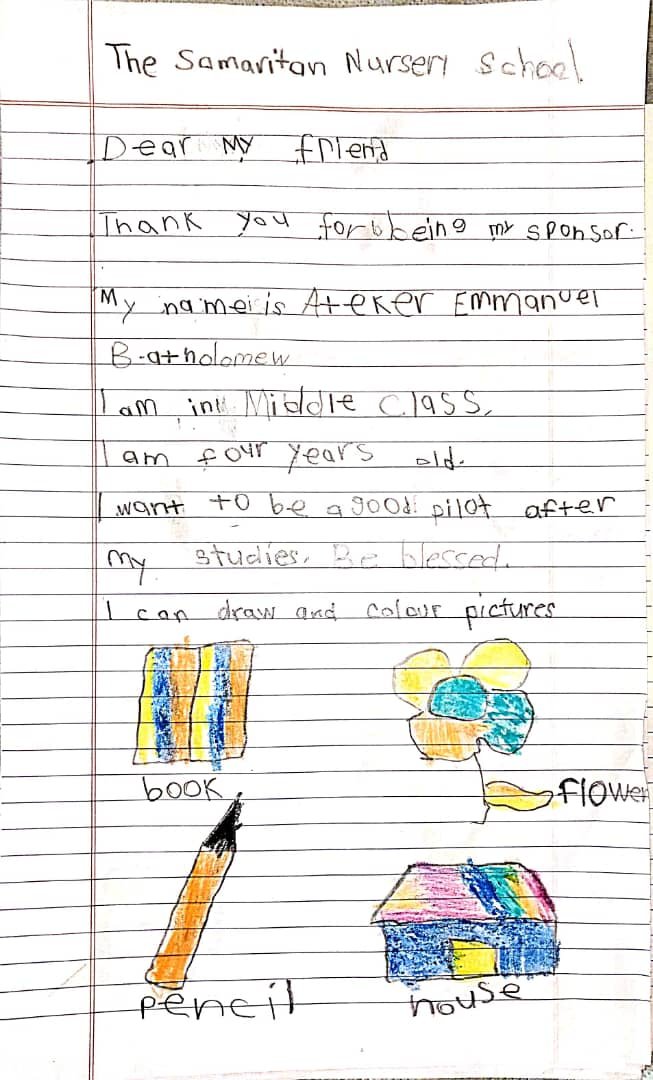 The Samaritan Nursery School
Dear My friend
Thank you for being my sponsor.
My name is Ateker Emmanuel
B-atholomew
I am in Middle Class.
I am four years old.
I want to be a good pilot after
my studies. Be blessed.
I can draw and colour pictures
book
flower
pencil
house